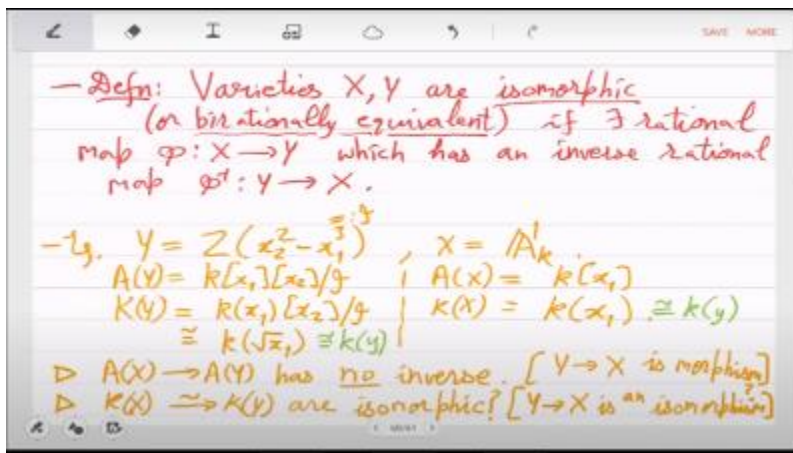 SAVE MORE
— Defn: Varieties X, Y are isomorphic
(or birationally equivalent) if ∃ rational
map φ: X → Y which has an inverse rational
map φ⁻¹: Y → X.
=: f
— Eg. Y = Z(x₂² - x₁³) , X = A¹ₖ.
A(Y) = k[x₁][x₂]/f | A(X) = k[x₁]
K(Y) = k(x₁)[x₂]/f | K(X) = k(x₁) ≅ k(y)
≅ k(√x₁) ≅ k(y)
▷ A(X) → A(Y) has no inverse. [Y → X is morphism]
▷ K(X) ⥲ K(Y) are isomorphic? [Y → X is an isomorphism]